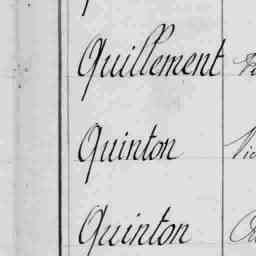 Quillement
Quinton
Quinton